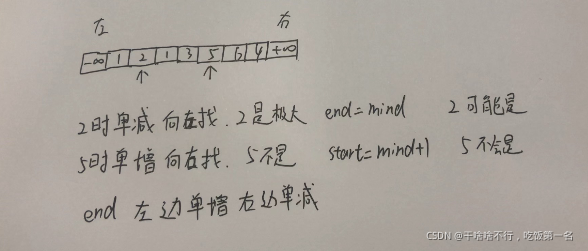 左 右
-∞ 1 2 1 3 5 6 4 +∞
2时单减 向左找. 2是极大 end=mind 2可能是
5时单增 向右找. 5不是 start=mind+1 5不会是
end 左边单增 右边单减
CSDN @干啥啥不行,吃饭第一名